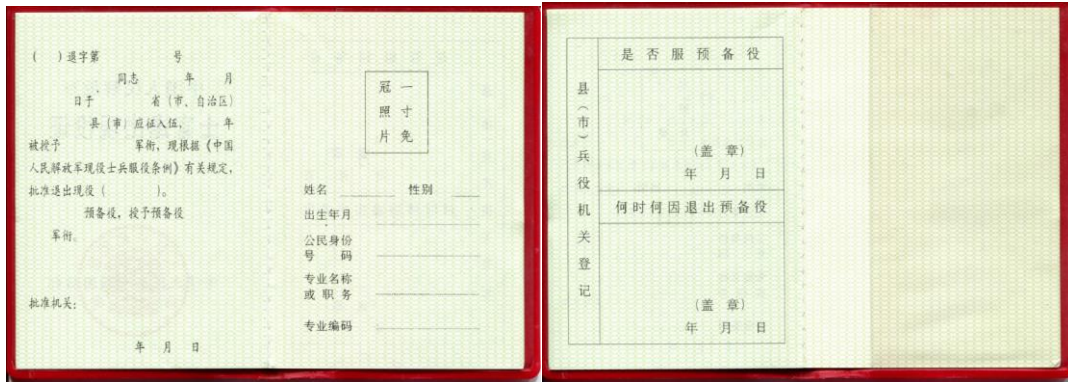 （　）退字第　　　号
同志　　年　月
日于　　省（市、自治区）
县（市）应征入伍，　　年
被授予　　军衔，现根据《中国
人民解放军现役士兵服役条例》有关规定，
批准退出现役（　　　）。
预备役，授予预备役
军衔。
批准机关：
年　月　日
一寸免
冠照片
姓名　　性别
出生年月
公民身份
号码
专业名称
或职务
专业编码
县（市）兵役机关登记
是否服预备役
（盖章）
年　月　日
何时何因退出预备役
（盖章）
年　月　日